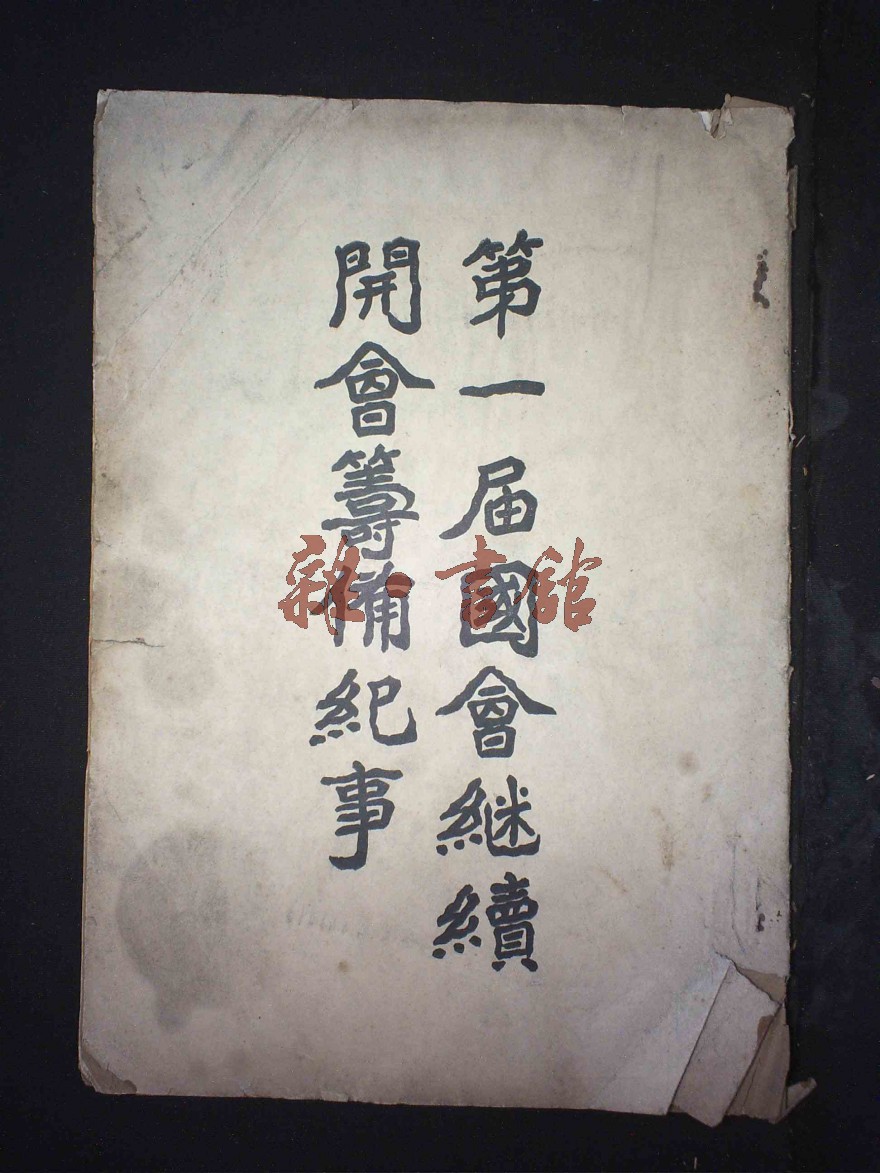 第一届國會継續
開會籌備紀事
雜·書館